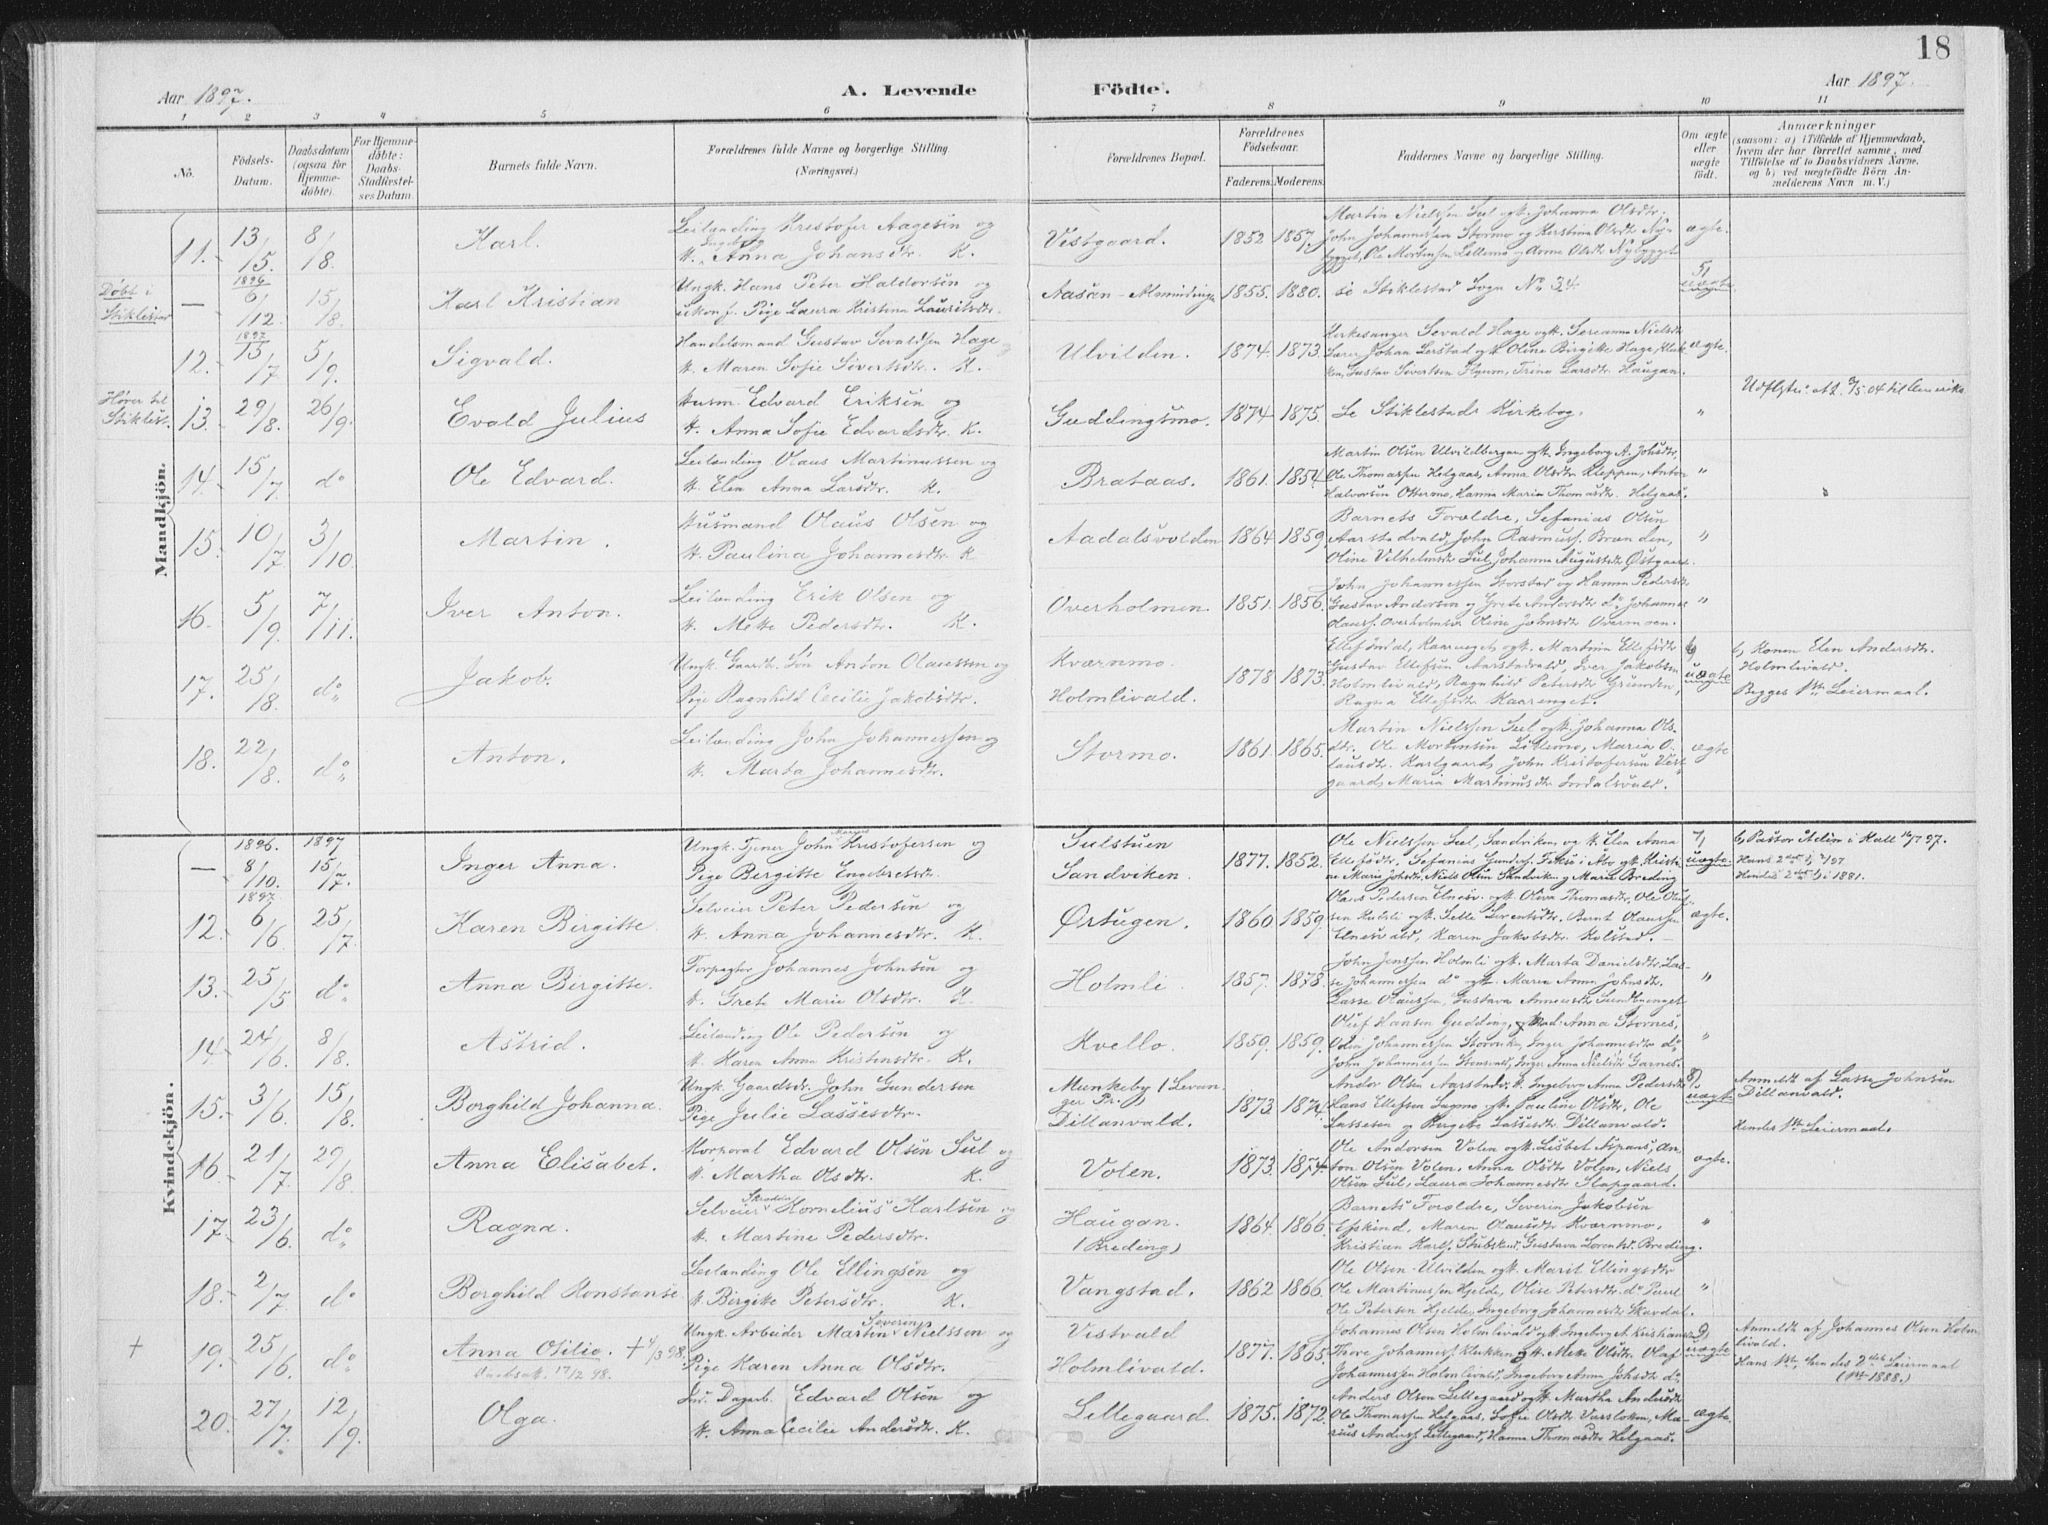 18
Aar 1897.
A. Levende
Födte.
Aar 1897.
1 2 3 4 5 6 7 8 9 10 11
No.
Födsels-Datum.
Daabsdatum (ogsaa for Hjemme-döbte).
For Hjemme-döbte: Daabs-Stadfæstel-ses Datum.
Barnets fulde Navn.
Forældrenes fulde Navne og borgerlige Stilling.
(Næringsvei.)
Forældrenes Bopæl.
Forældrenes Födselsaar.
Faderens. Moderens.
Faddernes Navne og borgerlige Stilling.
Om ægte eller uægte födt.
Anmærkninger
(saasom: a) i Tilfælde af Hjemmedaab,
hvem der har forrettet samme, med
Tilföielse af to Daabsvidners Navne.
og b) ved uægtefödte Börn An-
melderens Navn m. V.)
Mandkjön.
11. 13/5. 8/8. Karl. Leilænding Kristofer Aagesen og
H. Ingeborg Anna Johansdtr. K. Vestgaard. 1852. 1857.
Martin Nielssen Sul og H. Johanna Olsdtr.
John Johannessen Stormo og Kerstina Olsdtr Ny-
bygget, Ole Mortensen Lillemo og Anne Olsdtr Nybygget
ægte.
Døbt i Stiklestad
— 1896 6/12. 15/8. Karl Kristian Ungk. Hans Peter Haldorsen og
ukonf. Pige Laura Kristina Lauritsdtr. Aasan - Almindingen 1855. 1880. se Stiklestad Sogn No 34
5) uægte
12. 1897 13/7 5/9. Sigvald. Handelsmand Gustav Sevaldsen Hage
H. Maren Sofie Sivertsdtr. K. Ulvilden. 1874. 1873.
Kirkesanger Sevald Hage og H. Sereanna Nielsdtr
Lærer Johan Lerstad og H. Oline Birgitte Hage, Kluk-
ken, Gustav Sivertsen Flyum, Trina Larsdtr. Haugan.
ægte.
Hører til Stiklest.
13. 29/8. 26/9. Evald Julius Husm. Edvard Eriksen og
H. Anna Sofie Edvardsdtr. K. Guddingsmo. 1874 1875. Se Stiklestads Kirkebog. "
Udflytn. att. 3/5 04 til Amerika
14. 15/7. do Ole Edvard. Leilænding Olaus Martinussen og
H. Elen Anna Larsdtr. K. Brataas. 1861. 1854
Martin Olsen Ulvildbergan og H. Ingeborg A. Johsdtr.
Ole Thomassen Helgaas, Anna Olsdtr Kleppen, Anton
Halvorsen Ottermo, Hanna Maria Thomasdtr. Helgaas.
"
15. 10/7. 3/10. Martin. Husmand Olaus Olsen og
H. Paulina Johannesdtr. K Aadalsvolden 1864 1859.
Barnets Forældre, Sefanias Olsen
Aarstadvald, John Rasmuss. Brænden,
Oline Vilhelmsdtr Sul, Johanna Augustdtr Østgaard
"
16. 5/9. 7/11. Iver Anton. Leilænding Erik Olsen og
H. Mette Pedersdtr. K. Overholmen. 1851. 1856.
John Johannessen Storstad og Hanna Pedersdtr
Gustav Andersen og Grete Andersdtr do Johannes
Olauss. Overholmen Oline Johnsdtr Overmoen.
"
17. 25/8. do Jakob. Ungk. Gaardbr. Søn Anton Olaussen og
Pige Ragnhild Cecilie Jakobsdtr. Kværnmo.
Holmlivald. 1878 1873.
Ellef Indal, Kaarenget og H. Martina Ellefsdtr
Gustav Ellefsen Aarstadvald, Iver Jakobsen
Holmlivald, Ragnhild Petersdtr Grunden,
Ragna Ellefsdtr Kaarenget.
6) uægte
b, Konen Elen Andersdtr.
Holmlivald.
Begges 1ste Leiermaal.
18. 22/8. do Anton. Leilænding John Johannessen og
H. Marta Johannesdtr. Stormo. 1861. 1865.
Martin Nielssen Sul og H. Johanna Ols-
dtr. Ole Mortensen Lillemo, Maria O-
lausdtr. Karlgaard, John Kristofersen Vest-
gaard, Maria Martinusdtr Inndalsvald.
ægte
Kvindekjön.
— 1896. 8/10. 1897 15/7. Inger Anna. Ungk. Tjener John Marius Kristofersen og
Pige Birgitte Engebretsdtr. Sulstuen
Sandviken. 1877. 1852.
Ole Nielssen Sul, Sandviken, og H. Elen Anna
Ellefsdtr, Sefanias Gunders. og H. Kristi-
ne Marie Johsdtr, Niels Olsen Sandviken og Marie Breding
7) uægte.
b, Pastor i Kall 16/7 97.
Hans
Hendes 2det i 1881.
12. 1897. 6/6 25/7. Karen Birgitte. Selveier Peter Pedersen og
H. Anna Johannesdtr. K. Ørtugen. 1860 1859.
Olaus Pedersen Elnesv. og H. Oliva Thomasdtr, Ole Olaus-
sen og H. Sille Sivertsdtr. Bernt Olaussen
Elnesvald, Karen Jakobsdtr Kolstad.
ægte.
13. 25/5 do Anna Birgitte. Forpagter Johannes Johnsen og
H. Grete Marie Olsdtr. K. Holmli. 1857. 1878.
John Jenssen Holmli og H. Marta Danielsdtr. Las-
se Johannessen do og H. Maren Anna Johnsdtr.
Lasse Olaussen, Gustava Annesdtr Sundbyenget
"
14. 24/6. 8/8. Astrid. Leilænding Ole Pedersen og
H. Karen Anna Kristensdtr. K. Kvello. 1859. 1859.
Oluf Hansen Gudding, og Mad. Anna Stornes,
Odin Johannessen Storvuku, Inger Johannesdtr do
John Johannessen Stensvald, Inger Anna Nielsdtr Garnes.
"
15. 3/6. 15/8. Borghild Johanna. Ungk. Gaardsdr. John Gundersen
Pige Julie Lassesdtr. Munkeby (Levan-
ger Pr.)
Dillanvald. 1873. 1874.
Andor Olsen Aarstadv. H. Ingeborg Anna Pedersdtr
Hans Ellefsen Sagmo og H. Pauline Olsdtr, Ole
Lassesen og Birgitte Lassesdtr Dillanvald.
8) uægte
Anmeldt af Lasse Johnsen
Dillanvald.
Hendes 1ste Leiermaal.
16. 21/7. 29/8. Anna Elisabet. Korporal Edvard Olsen Sul og
H. Martha Olsdtr. K. Volen. 1873. 1874.
Ole Andersen Volen og H. Lisbet Aspaas, An-
ton Olsen Volen, Anna Olsdtr Volen, Niels
Olsen Sul, Laura Johannesdtr Slapgaard.
ægte.
17. 23/6. do Ragna. Selveier Skrædder Kornelius Karlsen og
H. Martine Pedersdtr. Haugan.
(Breding) 1864. 1866.
Barnets Forældre, Severin Jakobsen
Efskind, Maren Olausdtr Kværnmo,
Kristian Karls. Stubskind, Gustava Lorentsd. Breding.
"
18. 2/7. do Borghild Konstanse Leilænding Ole Ellingsen og
H. Birgitte Petersdtr. K. Vangstad. 1862 1866.
Ole Olsen Ulvilden og H. Marit Ellingsdtr
Ole Martinussen Hjelde, Olise Petersdtr. do Paul
Ole Petersen Hjelde, Ingeborg Johannesdtr Skavdal.
"
+ 19. 25/6. do Anna Otilie. + 4/3 98. Ungk. Arbeider Martin Severin Nielssen og
Daabsatt. 17/2 98. Pige Karen Anna Olsdtr. Vistvald
Holmlivald. 1877. 1865.
Johannes Olsen Holmlivald og H. Ingeborg A. Kristiansd.
Thore Johanness. Klukken og H. Mette Olsdtr Olaf
Johannessen Holmlivald, Ingeborg Anna Johsdtr do
9) uægte
Anmeldt af Johannes Olsen Holm-
livald.
Hans 1ste, hendes 2det Leiermaal
(1ste 1888.)
20. 27/7. 12/9. Olga. Ind. Dagarb. Edvard Olsen og
H. Anna Cecilie Andersdtr. K. Lillegaard. 1875. 1872.
Anders Olsen Lillegaard og H. Martha Andersdtr
Ole Thomassen Helgaas, Sofie Olsdtr Varsloken, Ma-
rius Anders. Lillegaard, Hanna Thomasdtr Helgaas.
ægte.